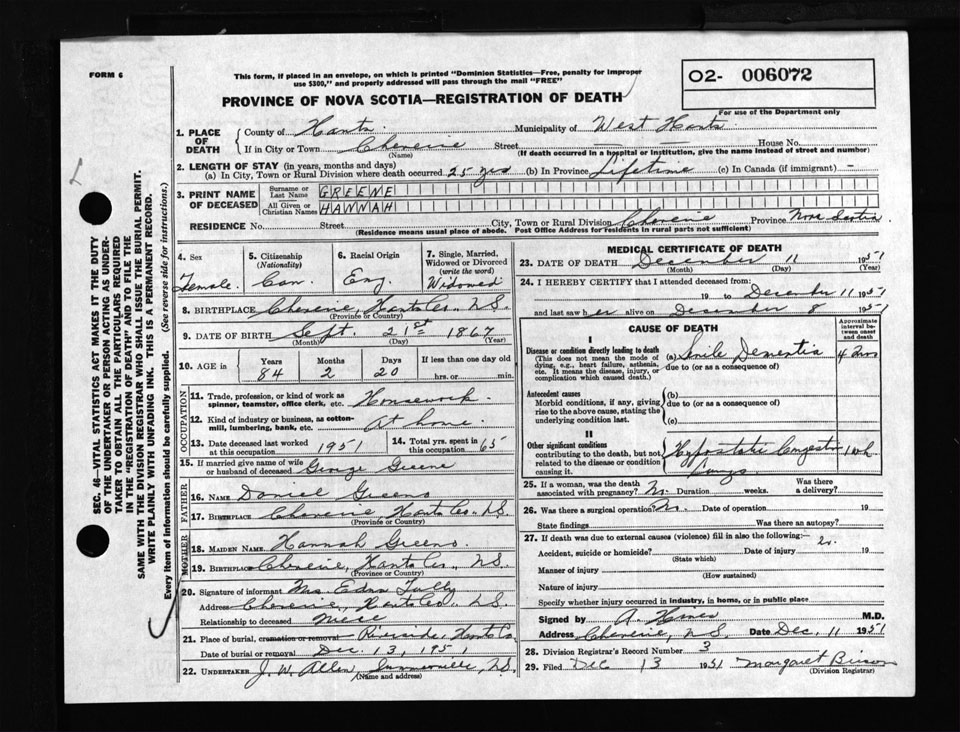 FORM 6
This form, if placed in an envelope, on which is printed "Dominion Statistics—Free, penalty for improper
use $300," and properly addressed will pass through the mail "FREE"
O2- 006072
For use of the Department only
PROVINCE OF NOVA SCOTIA—REGISTRATION OF DEATH
1. PLACE OF DEATH County of Hants Municipality of West Hants
If in City or Town Cheverie Street — House No.
(Name) (If death occurred in a hospital or institution, give the name instead of street and number)
2. LENGTH OF STAY (in years, months and days)
(a) In City, Town or Rural Division where death occurred 25 yrs (b) In Province Lifetime (c) In Canada (if immigrant) —
3. PRINT NAME OF DECEASED Surname or Last Name GREENE
All Given or Christian Names HANNAH
RESIDENCE No. Street City, Town or Rural Division Cheverie Province Nova Scotia
(Residence means usual place of abode. Post Office Address for residents in rural parts not sufficient)
4. Sex Female
5. Citizenship (Nationality) Can.
6. Racial Origin Eng
7. Single, Married, Widowed or Divorced (write the word) Widowed
8. BIRTHPLACE Cheverie, Hants Co., N.S.
(Province or Country)
9. DATE OF BIRTH Sept. 21st 1867
(Month) (Day) (Year)
10. AGE in Years 84 Months 2 Days 20 If less than one day old hrs. or min.
OCCUPATION
11. Trade, profession, or kind of work as spinner, teamster, office clerk, etc. Housework
12. Kind of industry or business, as cotton-mill, lumbering, bank, etc. At home
13. Date deceased last worked at this occupation 1951
14. Total yrs. spent in this occupation 65
15. If married give name of wife or husband of deceased George Greene
FATHER
16. NAME Daniel Greeno
17. BIRTHPLACE Cheverie Hants Co., N.S.
(Province or Country)
MOTHER
18. MAIDEN NAME Hannah Greeno
19. BIRTHPLACE Cheverie, Hants Co., N.S.
(Province or Country)
20. Signature of informant Mrs Edna
Address Cheverie, Hants Co., N.S.
Relationship to deceased Niece
21. Place of burial, cremation or removal Riverside, Hants Co.
Date of burial or removal Dec. 13, 1951
22. UNDERTAKER J. W. Allen, Summerville, N.S.
(Name and address)
MEDICAL CERTIFICATE OF DEATH
23. DATE OF DEATH December 11 1951
(Month) (Day) (Year)
24. I HEREBY CERTIFY that I attended deceased from:
19 to December 11 1951
and last saw her alive on December 8 1951
CAUSE OF DEATH
Approximate interval between onset and death
I
Disease or condition directly leading to death
(This does not mean the mode of dying, e.g., heart failure, asthenia, etc. It means the disease, injury, or complication which caused death.)
(a) Senile Dementia
due to (or as a consequence of)
Antecedent causes
Morbid conditions, if any, giving rise to the above cause, stating the underlying condition last.
(b)
due to (or as a consequence of)
(c)
II
Other significant conditions
contributing to the death, but not related to the disease or condition causing it.
Hypostatic Congestion Lungs 1 wk
25. If a woman, was the death associated with pregnancy? No. Duration weeks. Was there a delivery?
26. Was there a surgical operation? No. Date of operation 19
State findings Was there an autopsy?
27. If death was due to external causes (violence) fill in also the following:—
Accident, suicide or homicide? Date of injury 19
(State which)
Manner of injury
(How sustained)
Nature of injury
Specify whether injury occurred in industry, in home, or in public place
Signed by A. Hines M.D.
Address Cheverie, N.S. Date Dec. 11 1951
28. Division Registrar's Record Number 3
29. Filed Dec 13 1951 Margaret
(Division Registrar)
SEC. 46—VITAL STATISTICS ACT MAKES IT THE DUTY
OF THE UNDERTAKER OR PERSON ACTING AS UNDER-
TAKER TO OBTAIN ALL THE PARTICULARS REQUIRED
IN THE "REGISTRATION OF DEATH" AND TO FILE THE
SAME WITH THE DIVISION REGISTRAR WHO SHALL ISSUE THE BURIAL PERMIT.
WRITE PLAINLY WITH UNFADING INK. THIS IS A PERMANENT RECORD.
Every item of information should be carefully supplied. (See reverse side for instructions.)